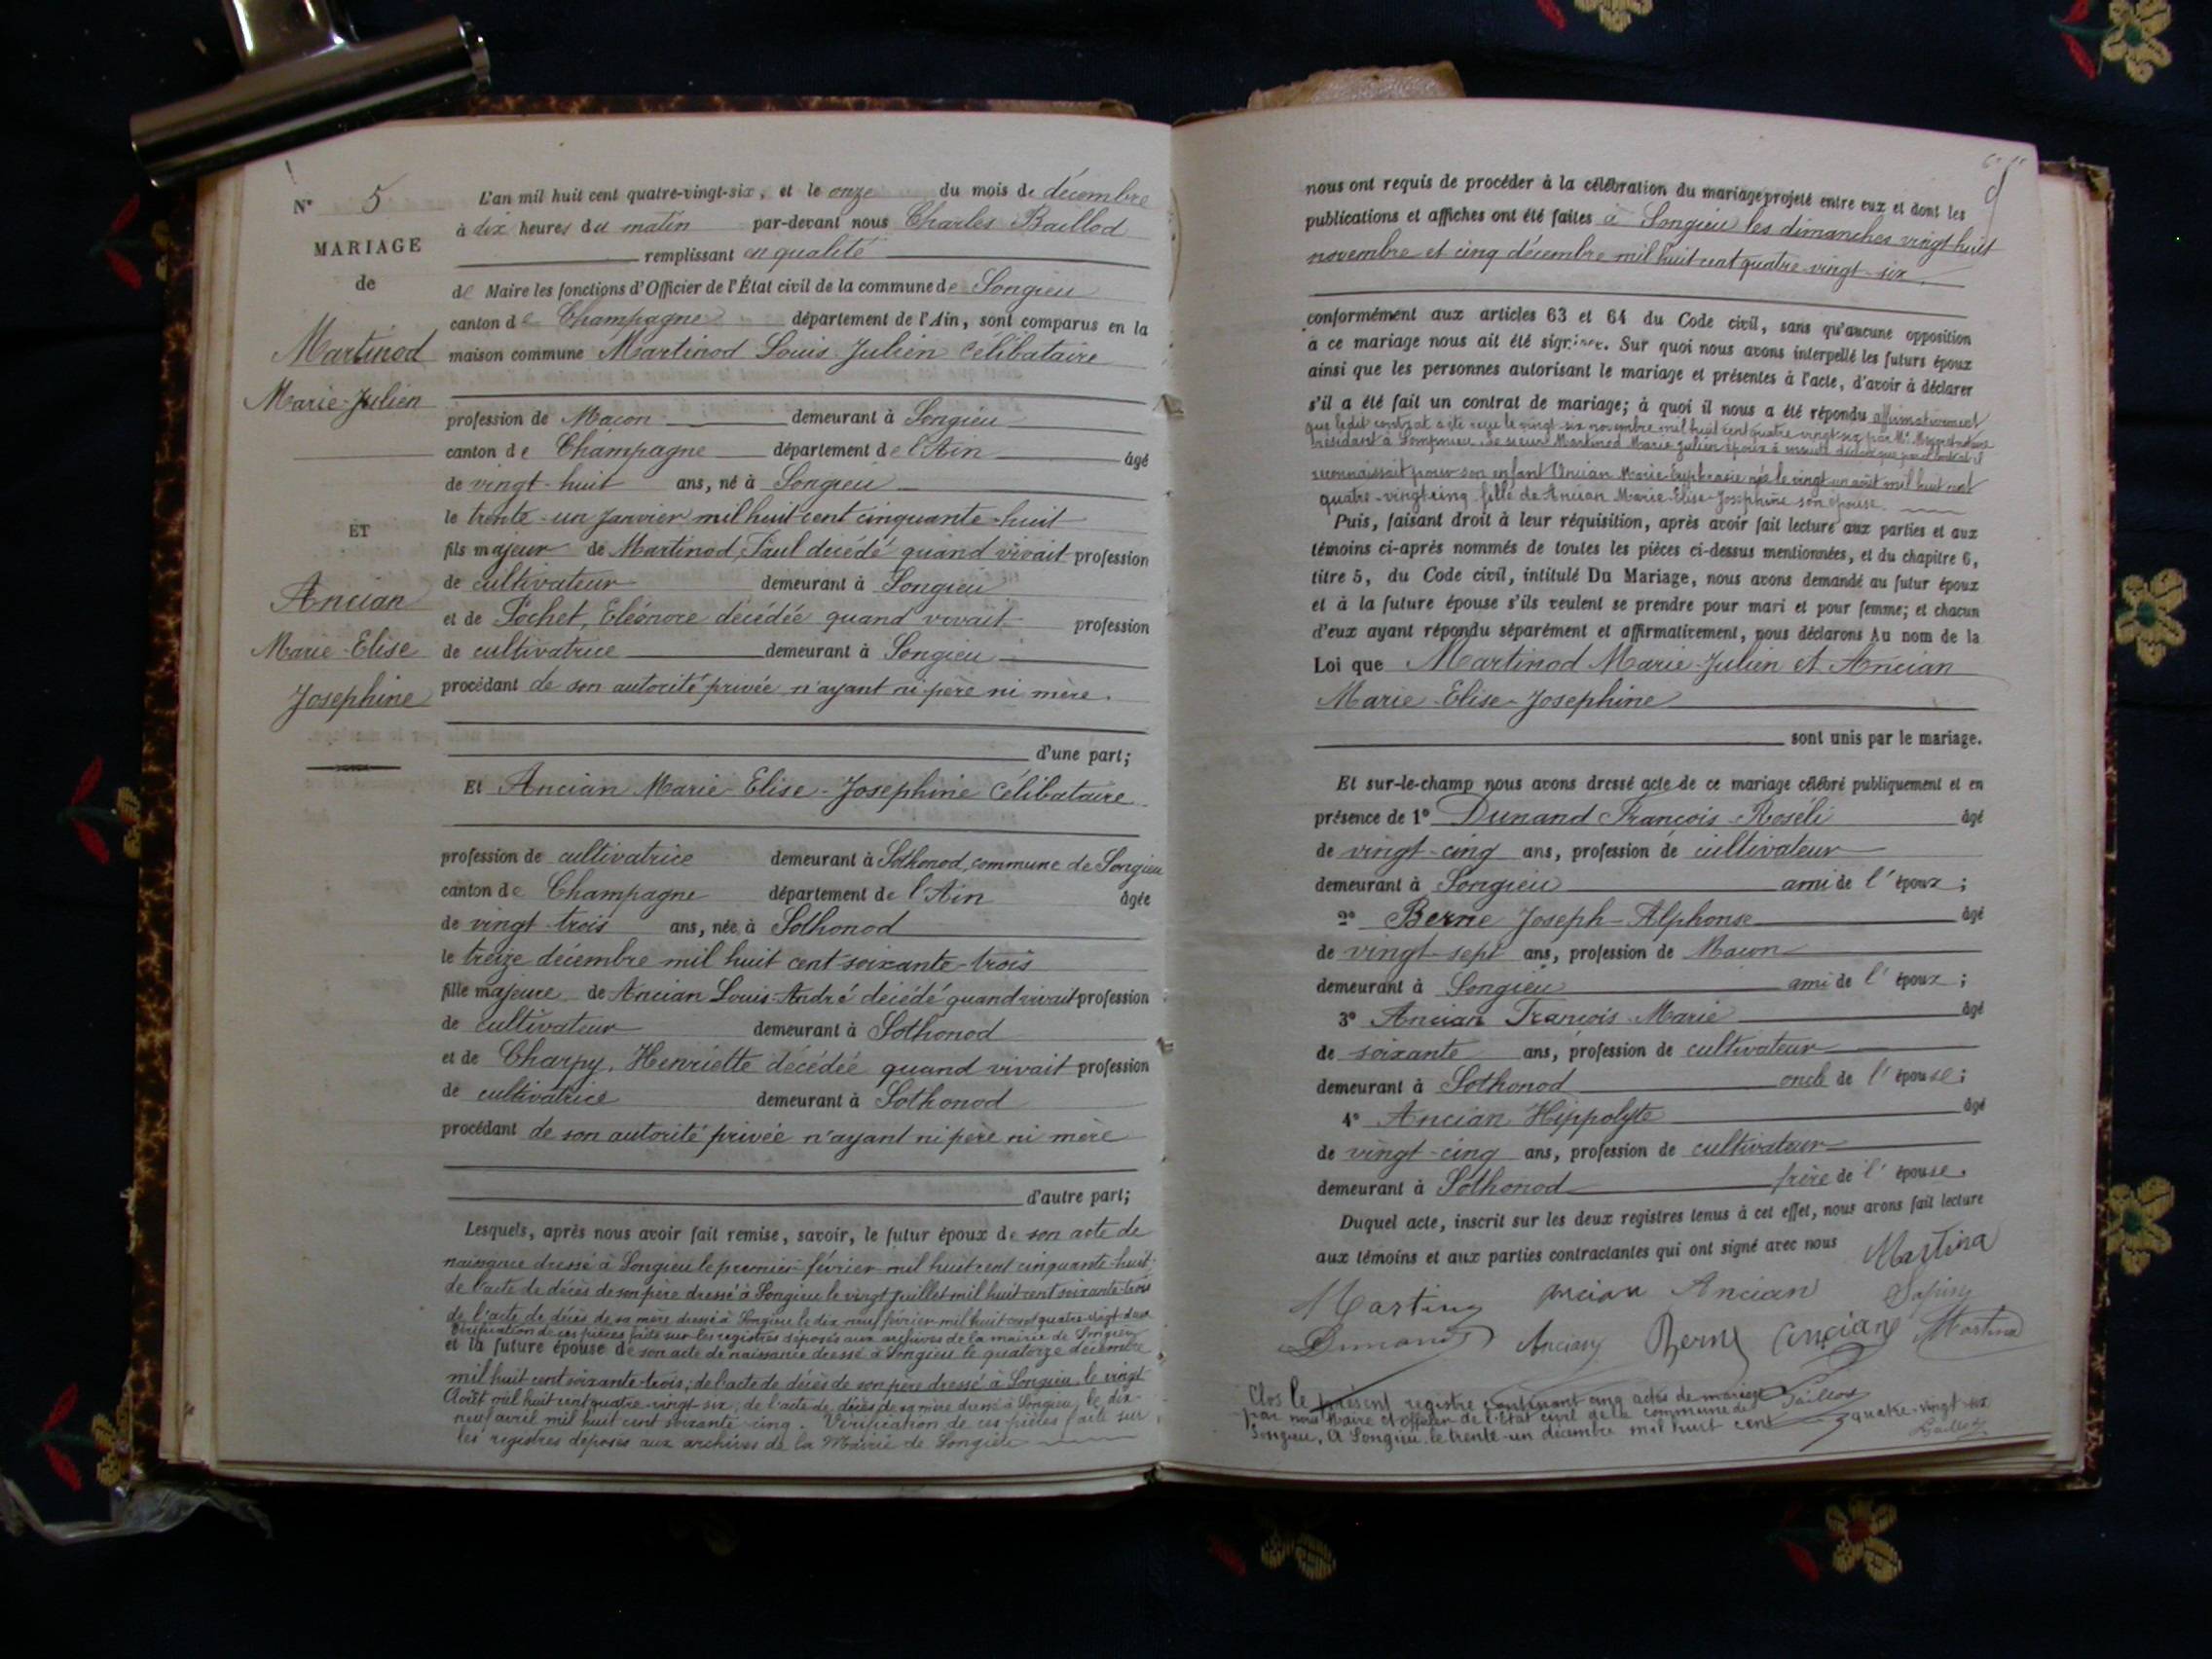 N° 5
MARIAGE
de
Martinod
Marie-Julien
ET
Ancian
Marie-Elise
Josephine
L'an mil huit cent quatre-vingt-six, et le onze du mois de décembre
à dix heures du matin par-devant nous Charles Baillod
remplissant en qualité
de Maire les fonctions d'Officier de l'État civil de la commune de Songieu
canton de Champagne département de l'Ain, sont comparus en la
maison commune Martinod Louis Julien Célibataire
profession de Macon demeurant à Songieu
canton de Champagne département de l'Ain âgé
de vingt-huit ans, né à Songieu
le trente-un Janvier mil huit cent cinquante-huit
fils majeur de Martinod, Paul décédé quand vivait profession
de cultivateur demeurant à Songieu
et de Pochet, Eléonore décédée quand vivait profession
de cultivatrice demeurant à Songieu
procédant de son autorité privée n'ayant ni père ni mère.
d'une part;
Et Ancian Marie-Elise-Josephine Célibataire
profession de cultivatrice demeurant à Sothonod, commune de Songieu
canton de Champagne département de l'Ain âgée
de vingt-trois ans, née à Sothonod
le treize décembre mil huit cent soixante-trois
fille majeure de Ancian Louis-André décédé quand vivait profession
de cultivateur demeurant à Sothonod
et de Charpy, Henriette décédée quand vivait profession
de cultivatrice demeurant à Sothonod
procédant de son autorité privée n'ayant ni père ni mère
d'autre part;
Lesquels, après nous avoir fait remise, savoir, le futur époux de son acte de
naissance dressé à Songieu le premier février mil huit cent cinquante-huit
de l'acte de décès de son père dressé à Songieu le vingt juillet mil huit cent soixante-trois
de l'acte de décès de sa mère dressé à Songieu le dix neuf février mil huit cent quatre-vingt-deux
Vérification de ces pièces faite sur les registres déposés aux archives de la mairie de Songieu
et la future épouse de son acte de naissance dressé à Songieu le quatorze décembre
mil huit cent soixante-trois; de l'acte de décès de son père dressé à Songieu, le vingt
Août mil huit cent quatre-vingt-six, de l'acte de décès de sa mère dressé à Songieu, le dix-
neuf avril mil huit cent soixante-cinq. Vérification de ces pièces faite sur
les registres déposés aux archives de la Mairie de Songieu
nous ont requis de procéder à la célébration du mariage projeté entre eux et dont les
publications et affiches ont été faites à Songieu les dimanches vingt huit
novembre et cinq décembre mil huit cent quatre-vingt-six,
conformément aux articles 63 et 64 du Code civil, sans qu'aucune opposition
à ce mariage nous ait été signifiée. Sur quoi nous avons interpellé les futurs époux
ainsi que les personnes autorisant le mariage et présentes à l'acte, d'avoir à déclarer
s'il a été fait un contrat de mariage; à quoi il nous a été répondu affirmativement
que ledit contrat a été reçu le vingt-six novembre mil huit cent quatre-vingt-six par Me
résidant à Le sieur Martinod Marie Julien époux a ensuite déclaré que il
reconnaissait pour son enfant Ancian Marie-Euphrasie née le vingt un août mil huit cent
quatre-vingt-cinq fille de Ancian Marie-Elise-Josephine son épouse.
Puis, faisant droit à leur réquisition, après avoir fait lecture aux parties et aux
témoins ci-après nommés de toutes les pièces ci-dessus mentionnées, et du chapitre 6,
titre 5, du Code civil, intitulé Du Mariage, nous avons demandé au futur époux
et à la future épouse s'ils veulent se prendre pour mari et pour femme; et chacun
d'eux ayant répondu séparément et affirmativement, nous déclarons Au nom de la
Loi que Martinod Marie-Julien et Ancian
Marie-Elise-Josephine
sont unis par le mariage.
Et sur-le-champ nous avons dressé acte de ce mariage célébré publiquement et en
présence de 1° Dunand François-Roséli âgé
de vingt-cinq ans, profession de cultivateur
demeurant à Songieu ami de l'époux;
2° Berne Joseph-Alphonse âgé
de vingt-sept ans, profession de Macon
demeurant à Songieu ami de l'époux;
3° Ancian François-Marie âgé
de soixante ans, profession de cultivateur
demeurant à Sothonod oncle de l'épouse;
4° Ancian Hippolyte âgé
de vingt-cinq ans, profession de cultivateur
demeurant à Sothonod frère de l'épouse.
Duquel acte, inscrit sur les deux registres tenus à cet effet, nous avons fait lecture
aux témoins et aux parties contractantes qui ont signé avec nous Martina
Ancian Ancian
Dunand Ancian Berne Anciane Martina
Clos le présent registre contenant cinq actes de mariage Baillod
par nous Maire et officier de l'Etat civil de la commune de
Songieu. A Songieu, le trente-un décembre mil huit cent quatre-vingt-six
Baillod